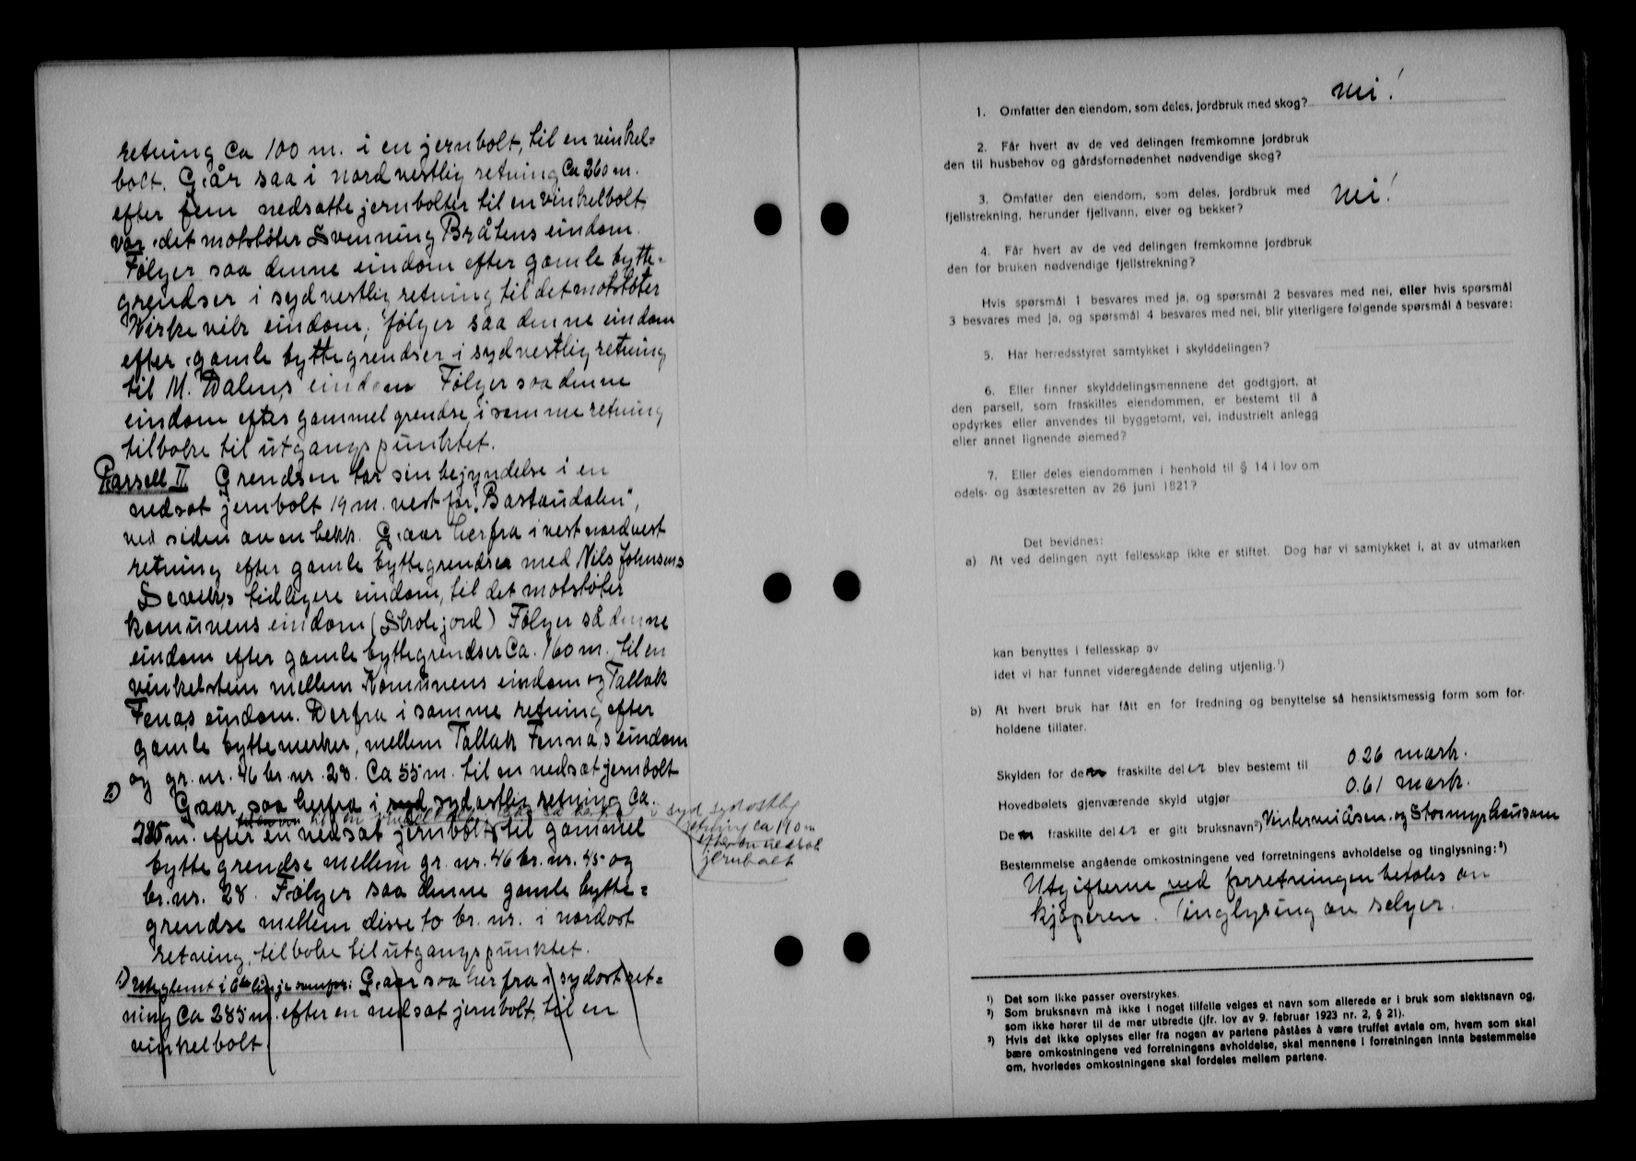 retning ca 100 m. i en jernbolt, til en vinkel-
bolt. Går saa i nordvestlig retning ca 260 m.
efter fem nedsatte jernbolter til en vinkelbolt
var det motstöter Svenning Bråtens eindom.
Fölger saa denne eindom efter gamle bytte-
grendser i sydvestlig retning til det motstöter
eindom, fölger saa denne eindom
efter gamle byttegrendser i sydvestlig retning
til M. Dalens eindom Fölger saa denne
eindom efter gammel grendse i samme retning
tilbake til utgangspunktet.
Parsell II Grendsen tar sin begyndelse i en
nedsat jernbolt 19 m. vest for "Bastaudalen",
ved siden av en bekk. Gaar herfra i vest nordvest
retning efter gamle byttegrendser med Nils Johnsens
tidligere eindom, til det motstöter
komunens eindom (Skolejord) Fölger så denne
eindom efter gamle byttegrendser Ca. 160 m. til en
vinkelstein mellem Komunens eindom og Tallak
Fenas eindom. Derfra i samme retning efter
gamle byttemerker, mellem Tallak Fennas eindom
og gr. nr. 46 br. nr. 28. Ca 55 m. til en nedsat jernbolt
Gaar saa herfra i syd sydostlig retning ca.
285 m. efter en nedsat jernbolt, til gammel
i syd sydostlig
retning ca 110 m
efter en nedsat
jernbolt
byttegrendse mellem gr. nr. 46 br. nr. 45 og
br. nr. 28. Fölger saa denne gamle bytte=
grendse mellem disse to br. nr. i nordost
retning, tilbake til utgangspunktet.
Gaar saa herfra i sydost ret=
ning Ca 285 m. efter en nedsat jernbolt, til en
vinkelbolt.
1. Omfatter den eiendom, som deles, jordbruk med skog? nei!
2. Får hvert av de ved delingen fremkomne jordbruk
den til husbehov og gårdsfornødenhet nødvendige skog?
3. Omfatter den eiendom, som deles, jordbruk med
fjellstrekning, herunder fjellvann, elver og bekker? nei!
4. Får hvert av de ved delingen fremkomne jordbruk
den for bruken nødvendige fjellstrekning?
Hvis spørsmål 1 besvares med ja, og spørsmål 2 besvares med nei, eller hvis spørsmål
3 besvares med ja, og spørsmål 4 besvares med nei, blir ytterligere følgende spørsmål å besvare:
5. Har herredsstyret samtykket i skylddelingen?
6. Eller finner skylddelingsmennene det godtgjort, at
den parsell, som fraskilles eiendommen, er bestemt til å
opdyrkes eller anvendes til byggetomt, vei, industrielt anlegg
eller annet lignende øiemed?
7. Eller deles eiendommen i henhold til § 14 i lov om
odels- og åsætesretten av 26 juni 1821?
Det bevidnes:
a) At ved delingen nytt fellesskap ikke er stiftet. Dog har vi samtykket i, at av utmarken
kan benyttes i fellesskap av
idet vi har funnet videregående deling utjenlig.¹)
b) At hvert bruk har fått en for fredning og benyttelse så hensiktsmessig form som for-
holdene tillater.
Skylden for de fraskilte deler blev bestemt til 0 26 mark.
Hovedbølets gjenværende skyld utgjør 0.61 mark.
De fraskilte deler er gitt bruksnavn²) Vinterveiåsen og Stormyrhausen
Bestemmelse angående omkostningene ved forretningens avholdelse og tinglysning:³)
Utgifterne ved forretningen betales av
kjöperen. Tinglysing av selger.
¹) Det som ikke passer overstrykes.
²) Som bruksnavn må ikke i noget tilfelle velges et navn som allerede er i bruk som slektsnavn og,
som ikke hører til de mer utbredte (jfr. lov av 9. februar 1923 nr. 2, § 21).
³) Hvis det ikke oplyses eller fra nogen av partene påstås å være truffet avtale om, hvem som skal
bære omkostningene ved forretningens avholdelse, skal mennene i forretningen innta bestemmelse
om, hvorledes omkostningene skal fordeles mellem partene.